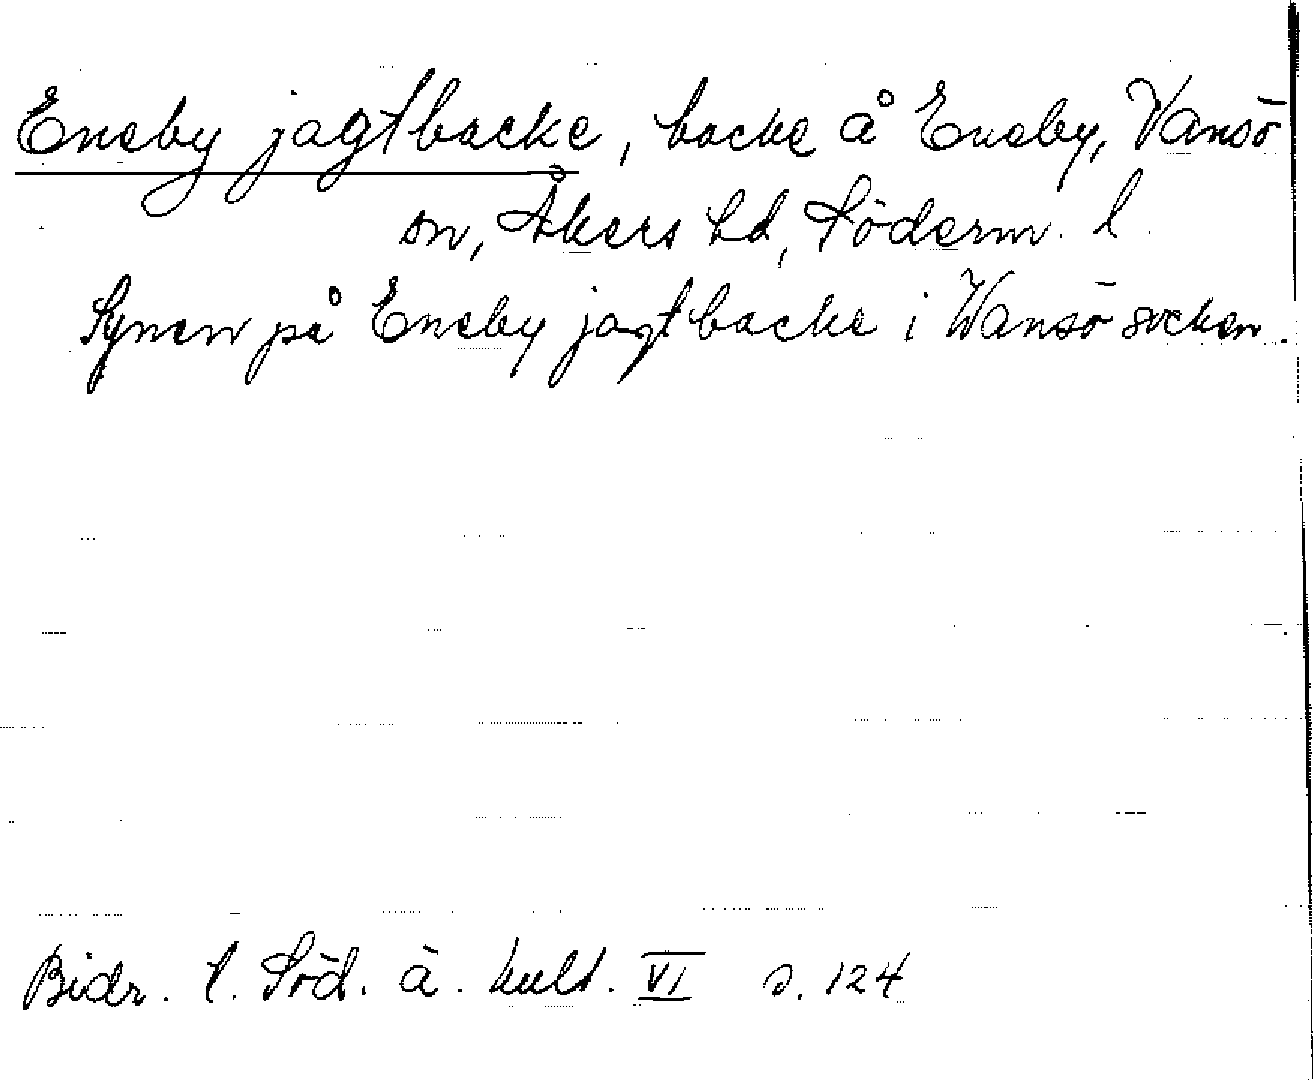 Eneby jagtbacke, backe å Eneby, Vansö
sn, Åkers hd, Söderm. l.
Synen på Eneby jagtbacke i Wansö socken.
Bidr. t. Söd. ä. kult. VI s. 124